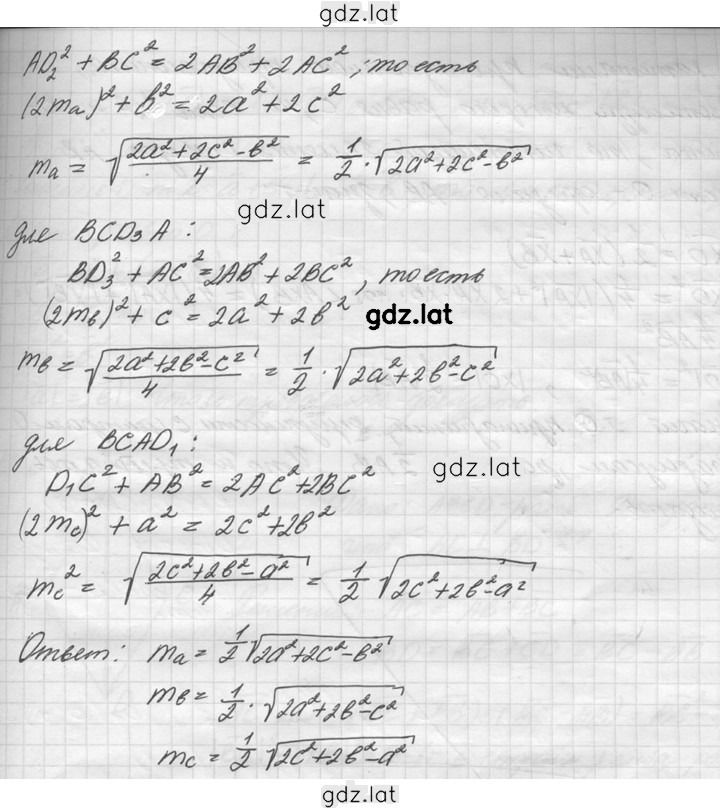 gdz.lat
AD₂² + BC² = 2AB² + 2AC²; то есть
(2mₐ)² + в² = 2a² + 2c²
mₐ = √((2a² + 2c² - в²)/4) = 1/2 · √(2a² + 2c² - в²)
gdz.lat
для BCD₃A :
BD₃² + AC² = 2AB² + 2BC², то есть
(2mв)² + c² = 2a² + 2в²
gdz.lat
mв = √((2a² + 2в² - c²)/4) = 1/2 · √(2a² + 2в² - c²)
для BCAD₁ :
gdz.lat
D₁C² + AB² = 2AC² + 2BC²
(2mc)² + a² = 2c² + 2в²
mc² = √((2c² + 2в² - a²)/4) = 1/2 √(2c² + 2в² - a²)
gdz.lat
Ответ: mₐ = 1/2 √(2a² + 2c² - в²)
mв = 1/2 · √(2a² + 2в² - c²)
mc = 1/2 √(2c² + 2в² - a²)
gdz.lat